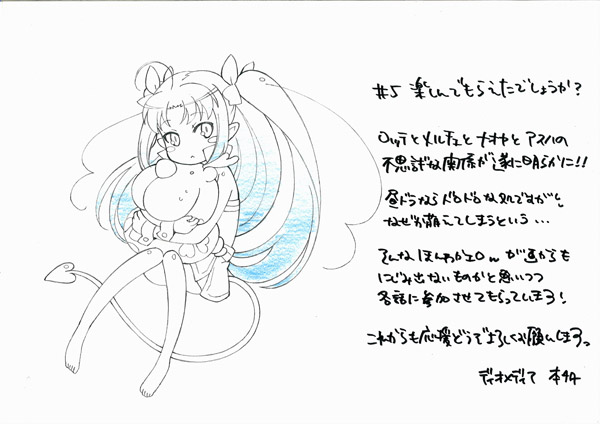 #5 楽しんでもらえたでしょうか?
ロッテとメルチェとナオヤとアスハの
不思議な関係が遂に明らかに!!
昼ドラならドロドロな処ですがと
なぜか萌えてしまうという…
そんなほんわかエロwが画からも
にじみ出ないものかと思いつつ
各話に参加させてもらっています!
これからも応援どうぞよろしくお願いしますっ
ディオメディア 本田